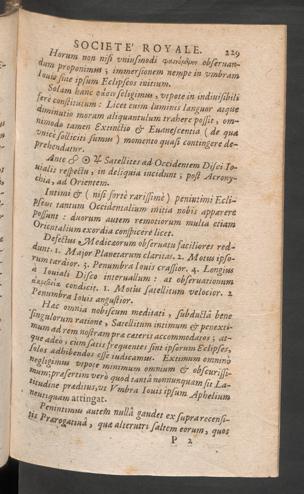 SOCIETE' ROYALE. 229
Horum non nisi vniusmodi φαινόμενον obseruan-
dum proponimus; immersionem nempe in vmbram
Iouis siue ipsum Eclipseos initium.
Solam hanc seligimus, vtpote in indiuisibili
ferè constitutum: Licet enim luminis languor atque
diminutio moram aliquantulum trahere possit, om-
nimodo tamen Extinctio & Euanescentia (de qua
vnicè solliciti sumus) momento quasi contingere de-
prehendatur.
Ante ☍ ☉ ♃ Satellites ad Occidentem Disci Io-
uialis respectu, in deliquia incidunt; post Acrony-
chia, ad Orientem.
Intimi & (nisi fortè rarissimè) penintimi Ecli-
pseus tantum Occidentalium initia nobis apparere
possunt: duorum autem remotiorum multa etiam
Orientalium exordia conspicere licet.
Defectus Mediceorum obseruatu faciliores red-
dunt: 1. Major Planetarum claritas. 2. Motus ipso-
rum tardior. 3. Penumbra Iouis crassior. 4. Longius
à Iouiali Disco interuallum: at obseruationum
condicit. 1. Motus satellitum velocior. 2
Penumbra Iouis angustior.
Hæc omnia nobiscum meditati, subductâ bene
singulorum ratione, Satellitum intimum & penexti-
mum ad rem nostram præ cæteris accommodos; at-
que adeo, cum satis frequentes sint ipsorum Eclipses,
solos adhibendos esse iudicamus. Extimum omnino
negligimus vtpote minimum omnium & obscurissi-
mum; præsertim verò quod tantâ nonnunquam sit La-
titudine præditus, vt Vmbra Iouis ipsum Aphelium
neutiquam attingat.
Penintimus autem nullâ gaudet ex supra recensi-
tis Prærogatiuâ, qua alterutri saltem eorum, quos
P 2